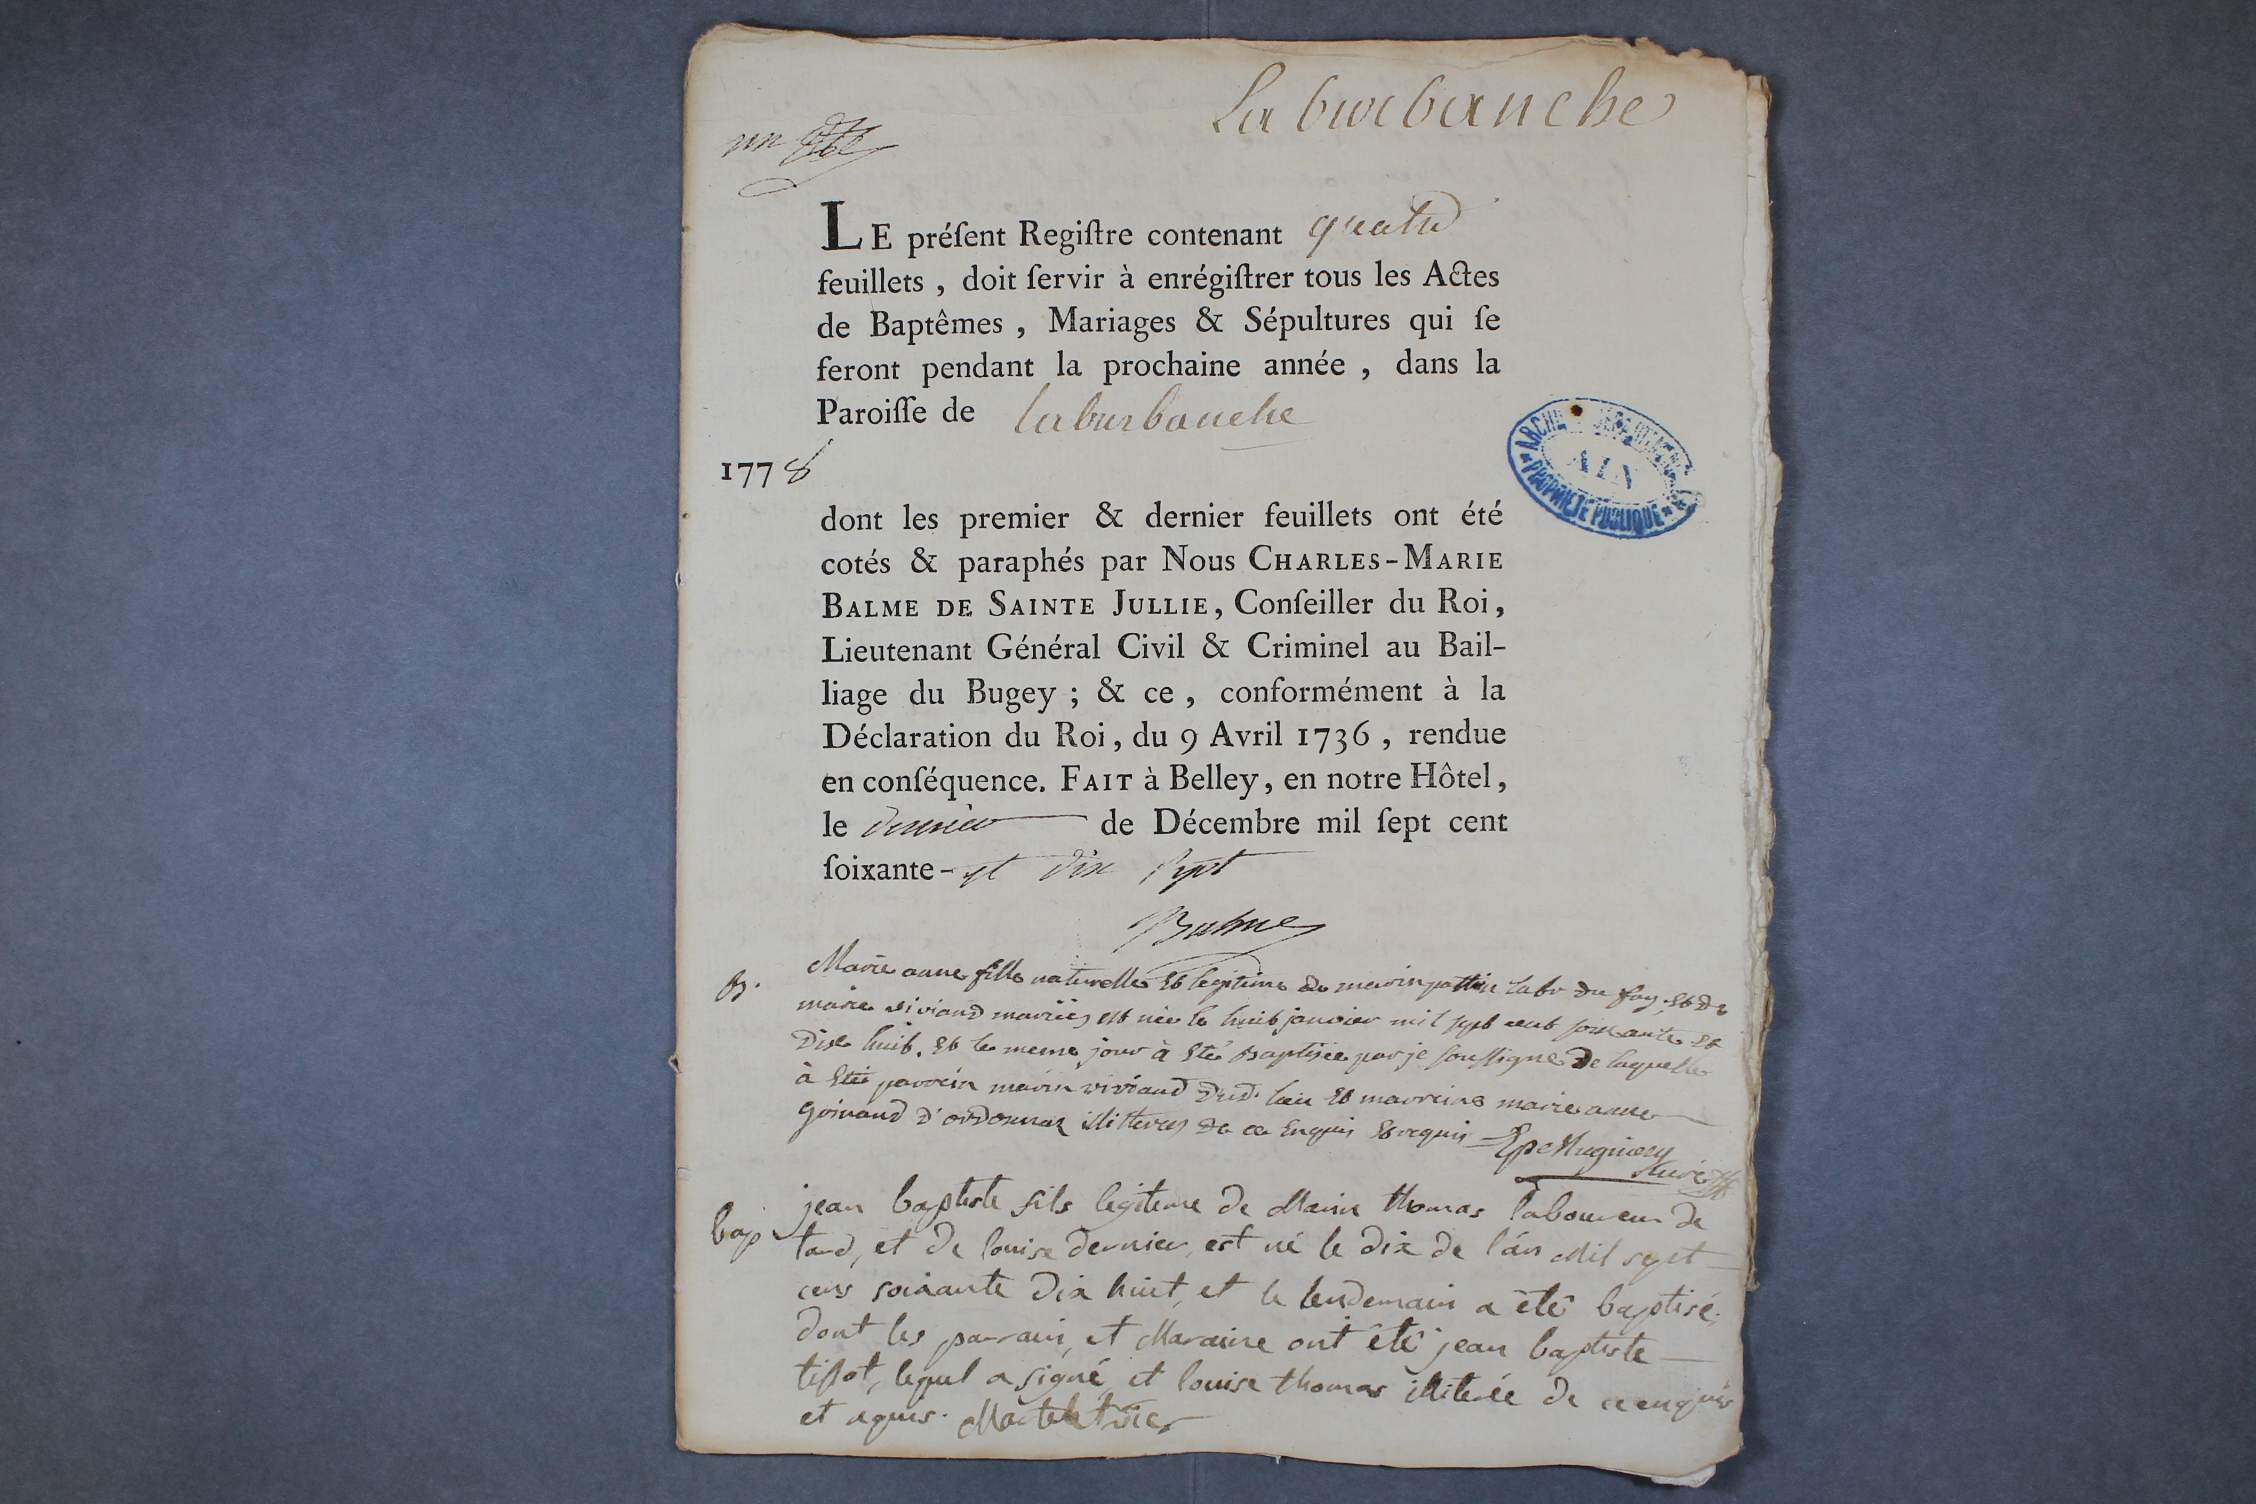 La burbanche
un
LE préſent Regiſtre contenant quatre
feuillets, doit ſervir à enrégiſtrer tous les Actes
de Baptêmes, Mariages & Sépultures qui ſe
feront pendant la prochaine année, dans la
Paroiſſe de laburbanche
1778
ARCHIVES DEPARTEMENTALES
AIN
PROPRIETE PUBLIQUE
dont les premier & dernier feuillets ont été
cotés & paraphés par Nous CHARLES-MARIE
BALME DE SAINTE JULLIE, Conſeiller du Roi,
Lieutenant Général Civil & Criminel au Bail-
liage du Bugey; & ce, conformément à la
Déclaration du Roi, du 9 Avril 1736, rendue
en conſéquence. FAIT à Belley, en notre Hôtel,
le dernier de Décembre mil ſept cent
ſoixante-et dix sept
Balme
B. Marie anne fille naturelle et legitime de marin pattin labr du fay, et de
marie viviand mariés est née le huit janvier mil sept cent soixante et
dix huit. et le meme jour à eté baptisée par je soussigné de laquelle
à eté parrein marin viviand dud. lieu et marreine marie anne
goinand d'ordonnaz illitteres de ce enquis et requis
curé
bap jean baptiste fils legiteme de Marin thomas laboureur de
tard, et de louise dernier, est né le dix de l'an Mil sept
cens soixante dix huit, et le lendemain a été baptisé.
dont les parain, et Maraine ont été jean baptiste
tissot, lequel a signé, et louise thomas illiterée de ce enquis
et requis. Martel